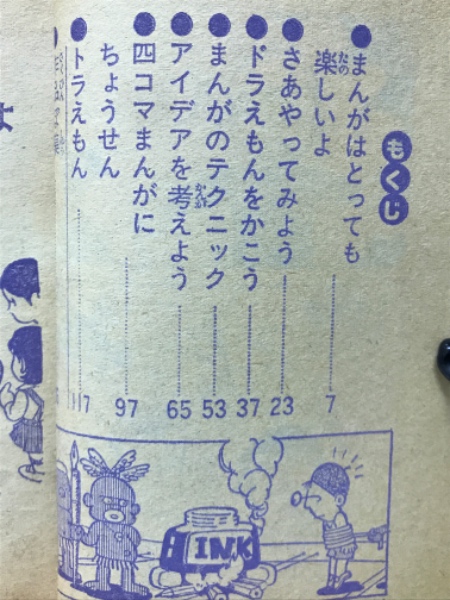 もくじ
●まんがはとっても
楽しいよ
7
●さあやってみよう
23
●ドラえもんをかこう
37
●まんがのテクニック
53
●アイデアを考えよう
65
●四コマまんがに
ちょうせん
97
●トラえもん
117
INK